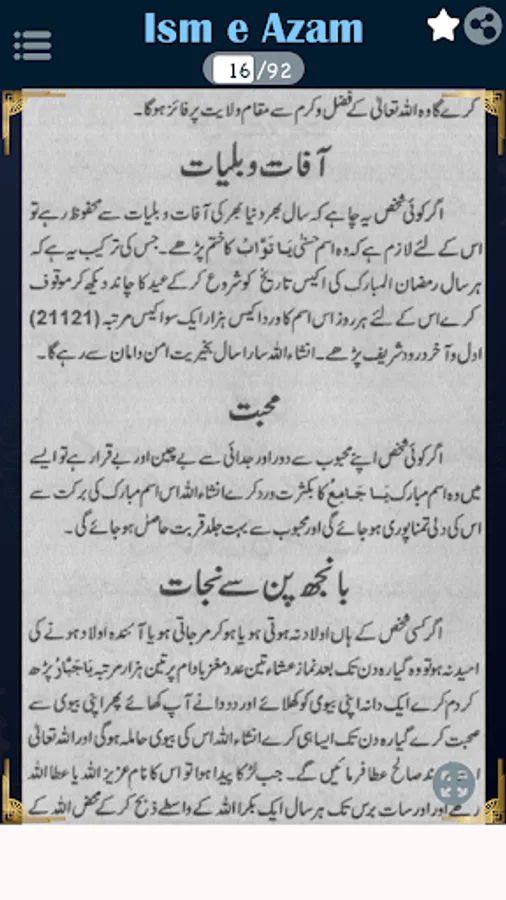 Ism e Azam
16/92
کرے گا وہ اللہ تعالیٰ کے فضل و کرم سے مقام ولایت پر فائز ہوگا۔
آفات و بلیات
اگر کوئی شخص یہ چاہے کہ سال بھر دنیا بھر کی آفات و بلیات سے محفوظ رہے تو
اس کے لئے لازم ہے کہ وہ اسم حسنٰی یَا تَوَّابُ کا ختم پڑھے۔ جس کی ترکیب یہ ہے کہ
ہر سال رمضان المبارک کی اکیس تاریخ کو شروع کر کے عید کا چاند دیکھ کر موقوف
کرے اس کے لئے ہر روز اس اسم کا ورد اکیس ہزار ایک سو اکیس مرتبہ (21121)
اول و آخر درود شریف پڑھے۔ انشاء اللہ سارا سال بخیریت امن و امان سے رہے گا۔
محبت
اگر کوئی شخص اپنے محبوب سے دور اور جدائی سے بے چین اور بے قرار ہے تو ایسے
میں وہ اسم مبارک یَا جَامِعُ کا بکثرت ورد کرے انشاء اللہ اس اسم مبارک کی برکت سے
اس کی دلی تمنا پوری ہو جائے گی اور محبوب سے بہت جلد قربت حاصل ہو جائے گی۔
بانجھ پن سے نجات
اگر کسی شخص کے ہاں اولاد نہ ہوتی ہو یا ہو کر مر جاتی ہو یا آئندہ اولاد ہونے کی
امید نہ ہو تو وہ گیارہ دن تک بعد نماز عشاء تین عدد مغز بادام پر تین ہزار مرتبہ یَا جَبَّارُ پڑھ
کر دم کرے ایک دانہ اپنی بیوی کو کھلائے اور دو دانے آپ کھائے پھر اپنی بیوی سے
صحبت کرے گیارہ دن تک ایسا ہی کرے انشاء اللہ اس کی بیوی حاملہ ہوگی اور اللہ تعالیٰ
صالح عطا فرمائیں گے۔ جب لڑکا پیدا ہوا تو اس کا نام عزیز اللہ یا عطا اللہ
اور سات برس تک ہر سال ایک بکرا اللہ کے واسطے ذبح کر کے محض اللہ کے